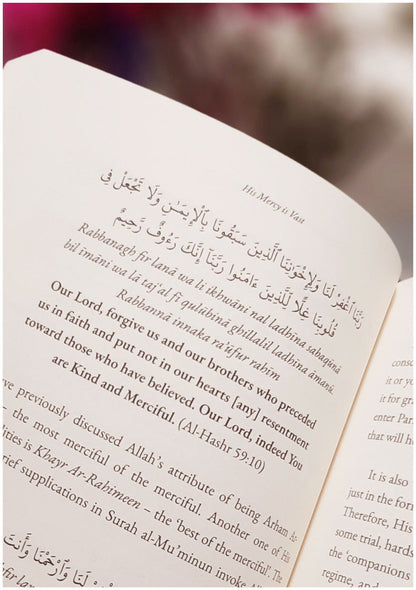 His Mercy is Vast
رَبَّنَا ٱغْفِرْ لَنَا وَلِإِخْوَٰنِنَا ٱلَّذِينَ سَبَقُونَا بِٱلْإِيمَـٰنِ وَلَا تَجْعَلْ فِى
قُلُوبِنَا غِلًّا لِّلَّذِينَ ءَامَنُوا۟ رَبَّنَآ إِنَّكَ رَءُوفٌ رَّحِيمٌ
Rabbanagh fir lanā wa li ikhwāni nal ladhīna sabaqūnā
bil imāni wa lā taj'al fī qulūbinā ghillalil ladhīna āmanū.
Rabbannā innaka ra'ūfur rahīm
Our Lord, forgive us and our brothers who preceded
us in faith and put not in our hearts [any] resentment
toward those who have believed. Our Lord, indeed You
are Kind and Merciful. (Al-Hashr 59:10)
previously discussed Allah's attribute of being Arham Ar-
– the most merciful of the merciful. Another one of His
is Khayr Ar-Rahimeen – the 'best of the merciful'. The
supplications in Surah al-Mu'minun invoke
لَنَا وَٱرْحَمْنَا وَأَنتَ
it or
it for
enter
that will
It is also
just in the
Therefore, His
some trial,
the 'companions
regime, and